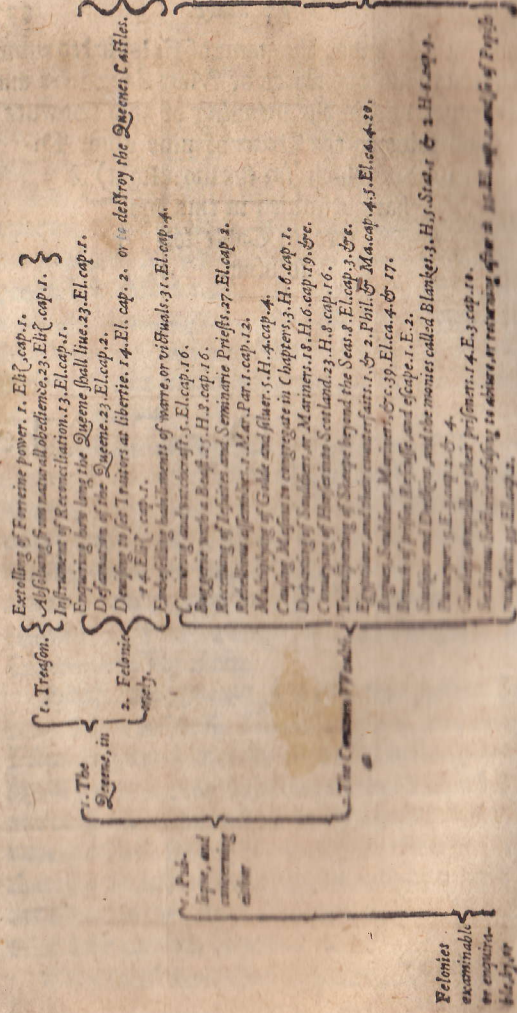 Felonies
examinable
or enquira-
ble by, or
1. Pub-
lique, and
concerning
either
1. The
Queene, in
1. Treason.
Extolling of Forreine power. 1. Eliz. cap. 1.
Absoluing from naturall obedience. 23. Eliz. cap. 1.
Instrument of Reconciliation. 13. El. cap. 1.
2. Felonie
onely.
Enquiring how long the Queene shall liue. 23. El. cap. 1.
Defamation of the Queene. 23. El. cap. 2.
Deuising to set Traitors at libertie. 14. El. cap. 2. or to destroy the Queenes Castles.
14. Eliz. cap. 1.
Embesilling habiliments of warre, or victuals. 31. El. cap. 4.
2. The Common Wealth
Coniuring and witchcraft. 5. El. cap. 16.
Buggerie with a Beast. 25. H. 8. cap. 16.
Receiuing of Iesuites and Seminarie Priests. 27. El. cap 2.
Rebellious assemblies. 1. Mar. Par. 1. cap. 12.
Multiplying of Golde and siluer. 5. H. 4. cap. 4.
Causing Masons to congregate in Chapters. 3. H. 6. cap. 1.
Departing of Souldiers, or Mariners. 18. H. 6. cap. 19. &c.
Conueying of Horses into Scotland. 23. H. 8. cap. 16.
Transporting of Sheepe beyond the Seas. 8. El. cap. 3. &c.
Egyptians, and their counterfaits. 1. & 2. Phil. & Ma. cap. 4. 5. El. ca. 4. 20.
Rogue, Souldier, Mariner, &c. 39. El. ca. 4. & 17.
Breach of prison and escape. 1. E. 2.
and the monies called Blankes. 3. H. 5. Stat. 1 & 2. H. 6. cap. 9.
cap. 2 & 4.
their prisoner. 14. E. 3. cap 10.
to abiure, or returning after it 35. El. cap. 1. and so of Popish
35. El. cap. 2.